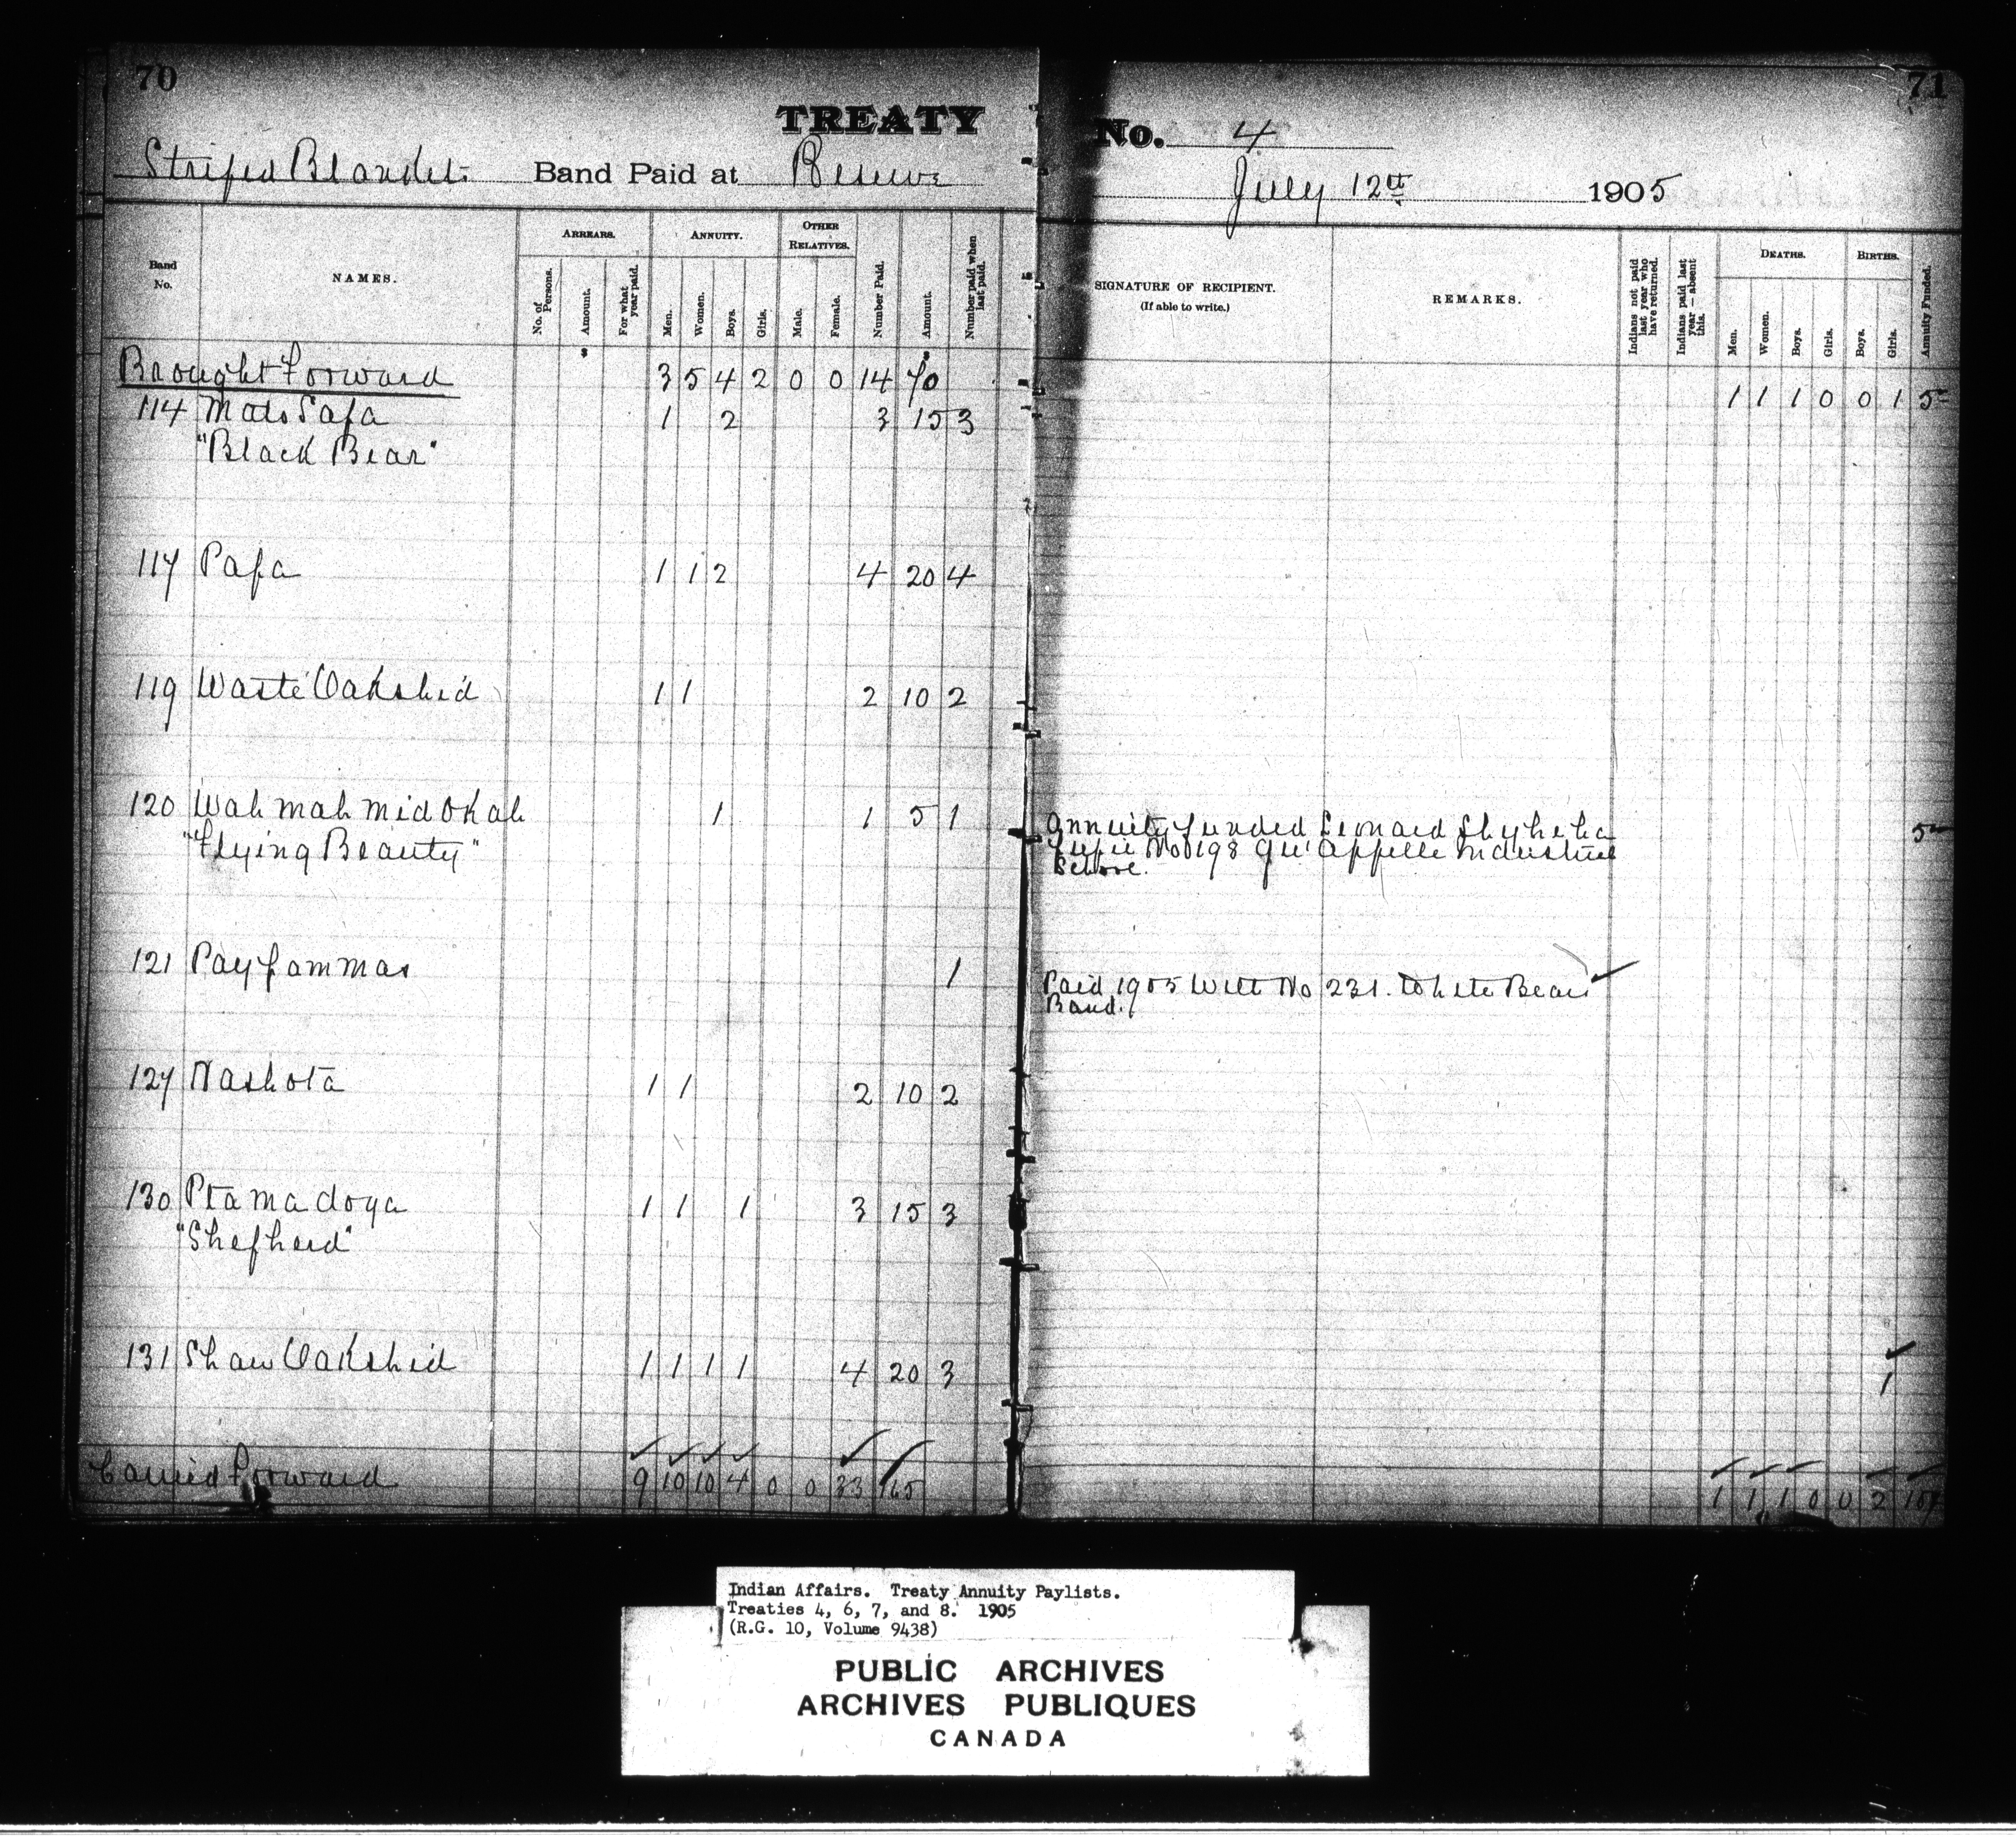 70
71
TREATY No. 4
Striped Blanket Band Paid at Reserve July 12th 1905
Band No.
NAMES.
ARREARS.
No. of Persons.
Amount.
For what year paid.
ANNUITY.
Men.
Women.
Boys.
Girls.
OTHER RELATIVES.
Male.
Female.
Number Paid.
Amount.
Number paid when last paid.
SIGNATURE OF RECIPIENT.
(If able to write.)
REMARKS.
Indians not paid last year who have returned.
Indians paid last year — absent this.
DEATHS.
Men.
Women.
Boys.
Girls.
BIRTHS.
Boys.
Girls.
Annuity Funded.
$ $
Brought Forward 3 5 4 2 0 0 14 70 1 1 1 0 0 1 5
114 Mato Sapa 1 2 3 15 3
"Black Bear"
117 Papa 1 1 2 4 20 4
119 Waste Oakshid 1 1 2 10 2
120 Wah mah mid Okah 1 1 5 1 Annuity funded Leonard 5
"Flying Beauty" No 0198 Qu'Appelle Industrial
School.
121 Paypammas 1 Paid 1905 With No 231. White Bears
Band.
127 Nashota 1 1 2 10 2
130 Ptamadoya 1 1 1 3 15 3
"Shepherd"
131 Shaw Oakshid 1 1 1 1 4 20 3 1
Carried Forward 9 10 10 4 0 0 33 165 1 1 1 0 0 2 10
Indian Affairs. Treaty Annuity Paylists.
Treaties 4, 6, 7, and 8. 1905
(R.G. 10, Volume 9438)
PUBLIC ARCHIVES
ARCHIVES PUBLIQUES
CANADA